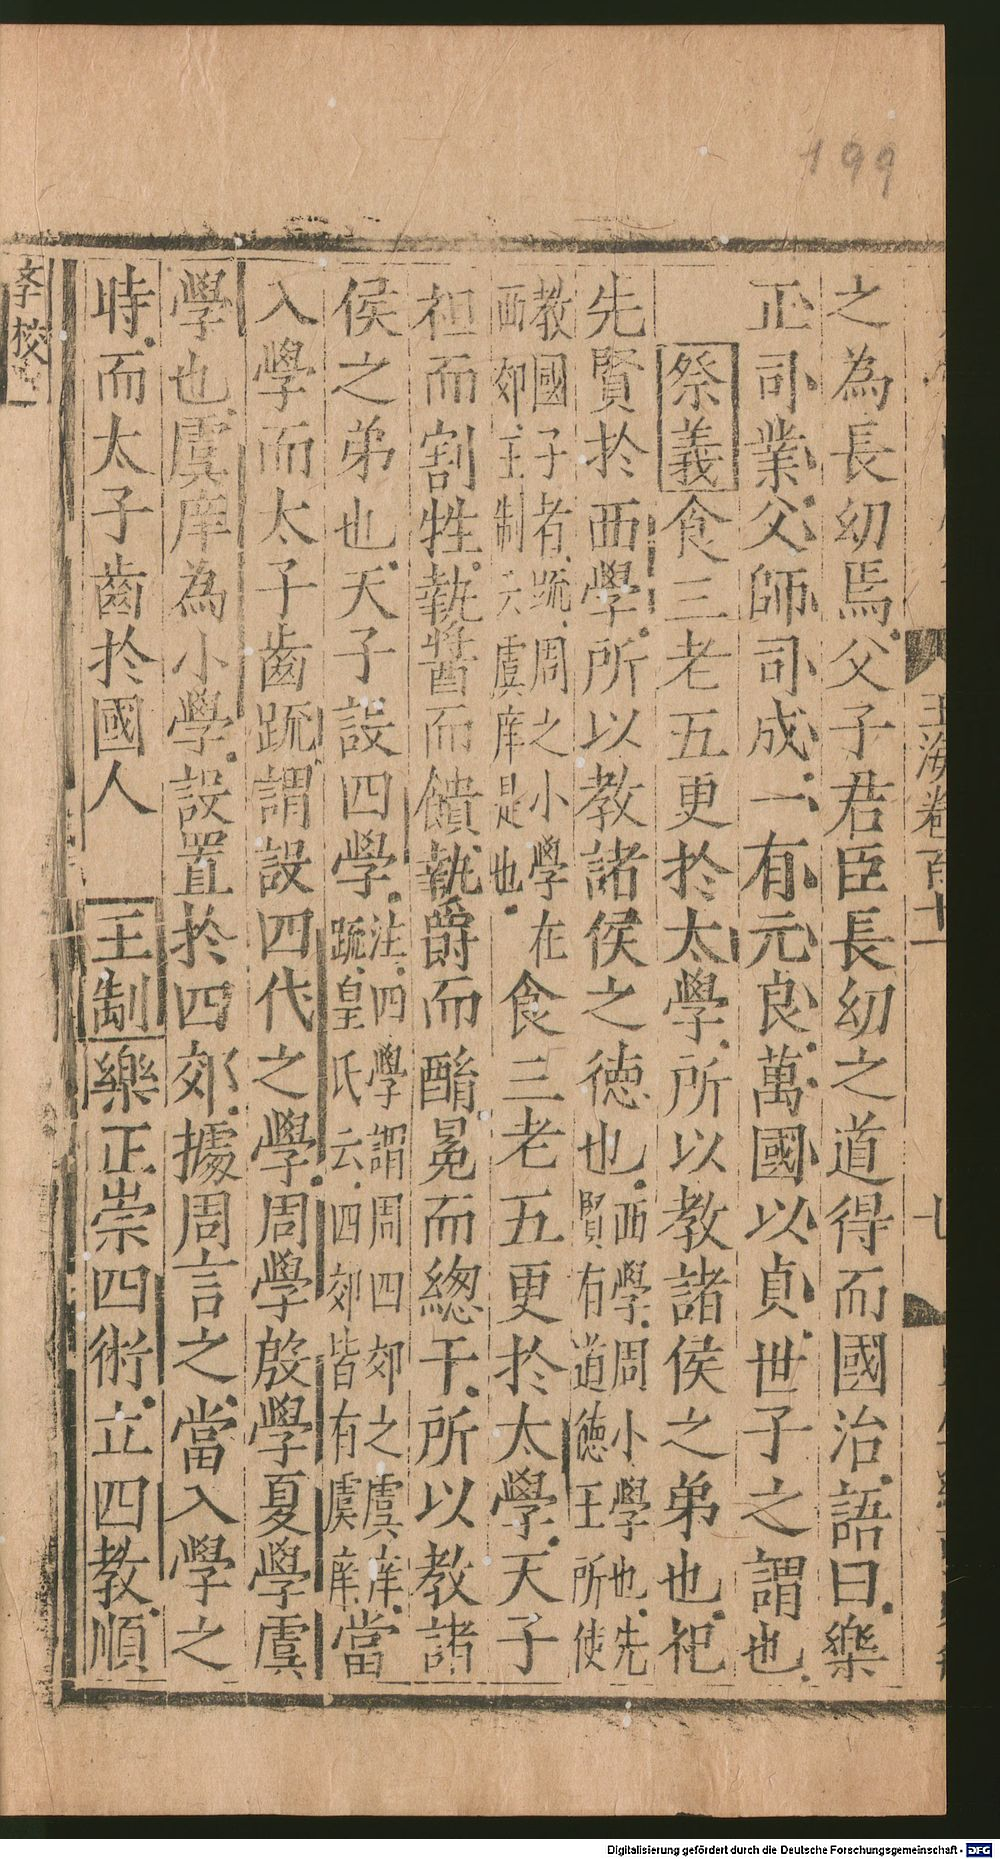 199
玉海卷百十一
七
之為長幼焉父子君臣長幼之道得而國治語曰樂
正司業父師司成一有元良萬國以貞世子之謂也
祭義食三老五更於太學所以教諸侯之弟也祀
先賢於西學所以教諸侯之德也西學周小學也先賢有道德王所使
教國子者䟽周之小學在西郊王制云虞庠是也食三老五更於太學天子
袒而割牲執醬而饋執爵而酳冕而緫干所以教諸
侯之弟也天子設四學注四學謂周四郊之虞庠䟽皇氏云四郊皆有虞庠當
入學而太子齒䟽謂設四代之學周學殷學夏學虞
學也虞庠為小學設置於四郊據周言之當入學之
時而太子齒於國人 王制樂正崇四術立四教順
學校
Digitalisierung gefördert durch die Deutsche Forschungsgemeinschaft - DFG